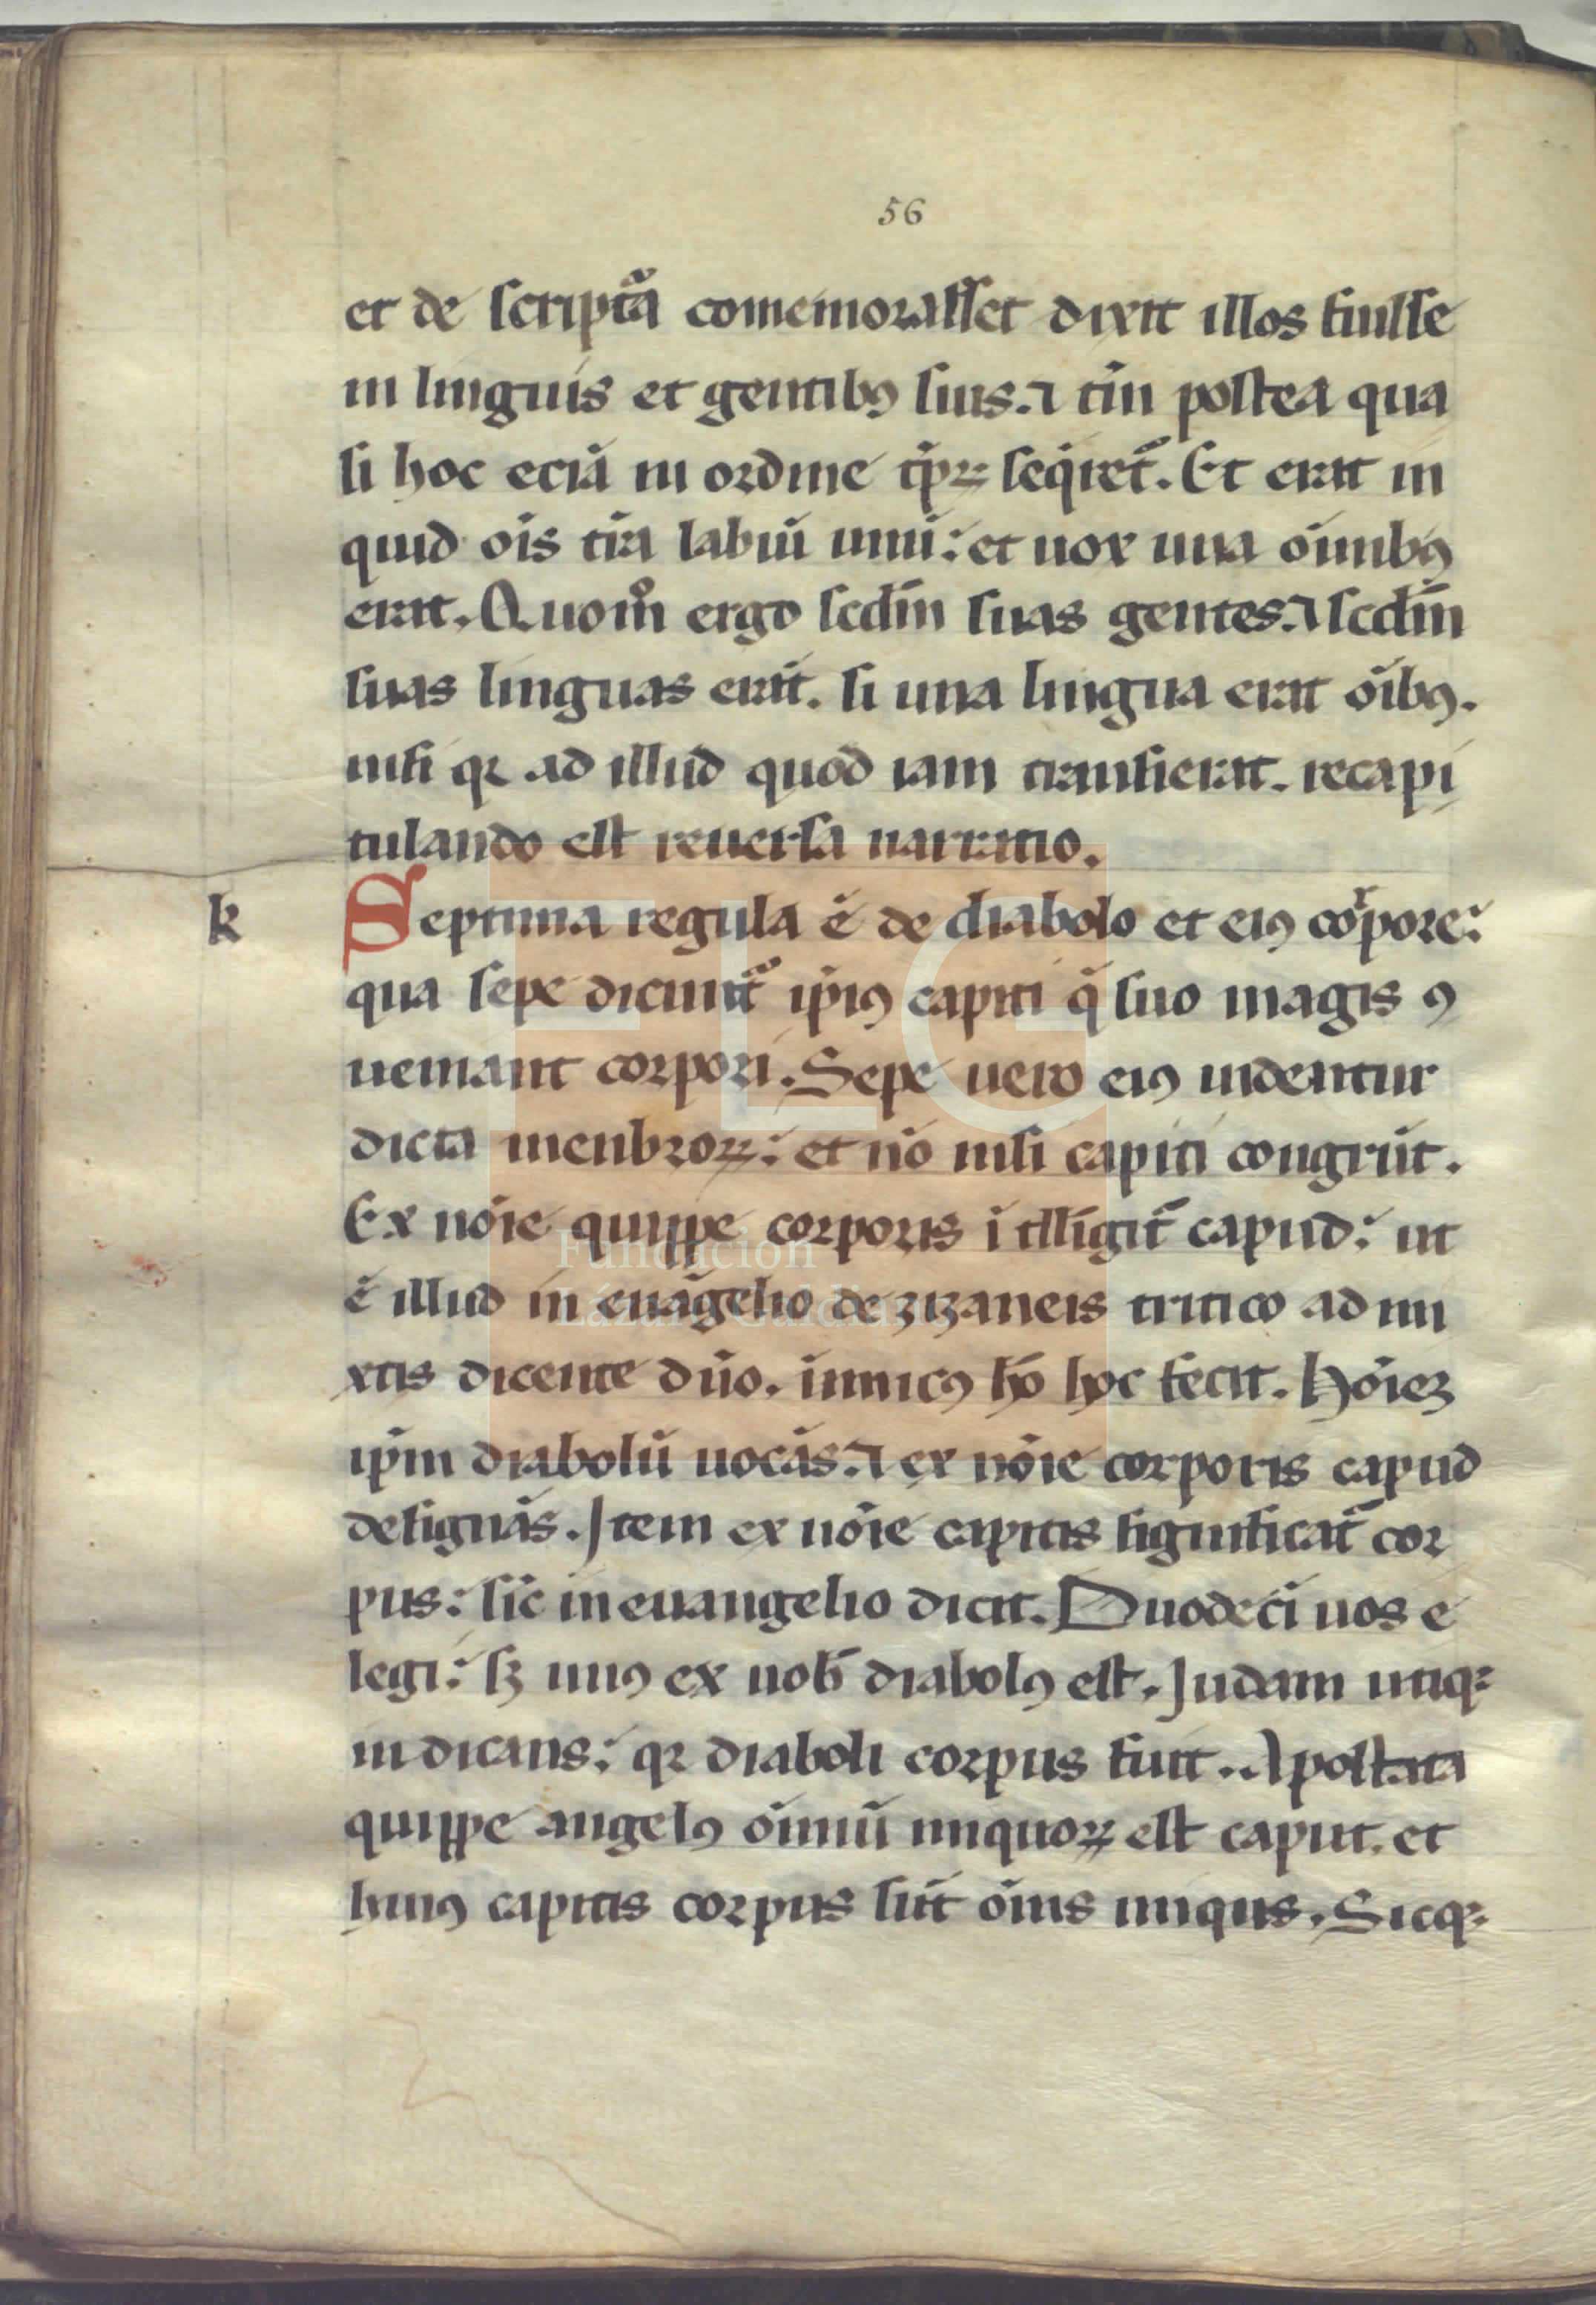 56
et de scriptã comemorasset dixit illos fuisse
in linguis et gentibꝯ suis. ⁊ tñ postea qua
si hoc eciã in ordine tp̃ꝝ seq̃ret᷑. Et erat in
quid oĩs tr̃a labiũ unũ: et uox una oĩnibꝯ
erat. Quom̊ ergo scdm̃ suas gentes. ⁊ scdm̃
suas linguas erãt. si una lingua erat oĩbꝯ.
nisi qꝛ ad illud quod iam transierat. recapi
tulando est reuersa narratio.
k
Septima regula ẽ de diabolo et eiꝯ corpore:
qua sepe dicunt᷑ ip̃iꝯ capiti q̃ suo magis ꝯ
ueniant corpori. Sepe uero eiꝯ uidentur
dicta menbroꝝ: et nõ nisi capiti congrũt.
Ex nõie quippe corporis ĩtllĩgit᷑ capud: ut
ẽ illud in euãgelio de zizaneis tritico ad mi
xtis dicente dño. inimicꝯ hõ hoc fecit. Hoĩeꝫ
ip̃m diabolũ uocãs. ⁊ ex nõie corporis capud
designãs. Item ex nõie capitis significat᷑ cor
pus: sic̃ in euangelio dicit. Duodecĩ uos e
legi: sꝫ unꝯ ex nob̃ diabolꝯ est. Judam utiqꝫ
indicans: qꝛ diaboli corpus fuit. Apostata
quippe angelꝯ oĩniũ iniquoꝝ est caput. et
huiꝯ capitis corpus sũt oĩnis iniquis. Sicqꝫ
Fundación
Lázaro Galdiano
FLG